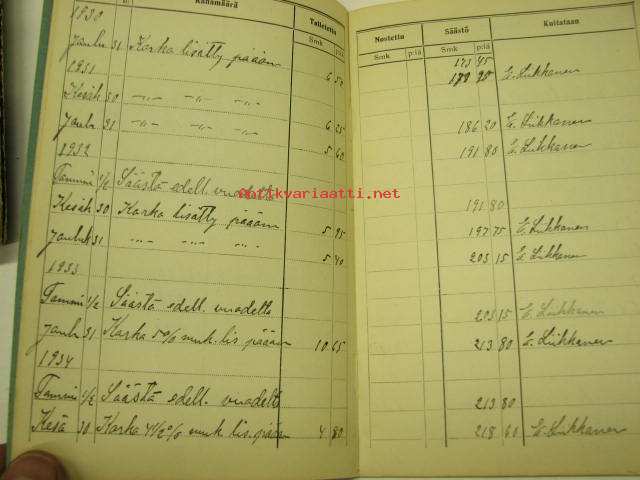 Rahamäärä Talletettu Nostettu Säästö Kuitataan
Smk p:iä Smk p:iä Smk p:iä
1930 173 45
Jouluk 31 Korko lisätty pääom 6 52 179 90 E. Liikkanen
1931
Kesäk 30 -„- -„- -„- 6 25 186 20 E. Liikkanen
Jouluk 31 -„- -„- -„- 5 60 191 80 E. Liikkanen
1932
Tammi 1/2 Säästö edell. vuodelta 191 80
Kesäk 30 Korko lisätty pääom 5 95 197 75 E. Liikkanen
Jouluk 31 -„- -„- 5 40 203 15 E. Liikkanen
1933
Tammi 1/2 Säästö edell. vuodelta 203 15 E. Liikkanen
Jouluk 31 Korko 5% muk. lis. pääom 10 65 213 80 E. Liikkanen
1934
Tammi 1/2 Säästö edell. vuodelta 213 80
Kesä 30 Korko 4 1/2% muk. lis. pääom 4 80 218 60 E. Liikkanen
antikvariaatti.net